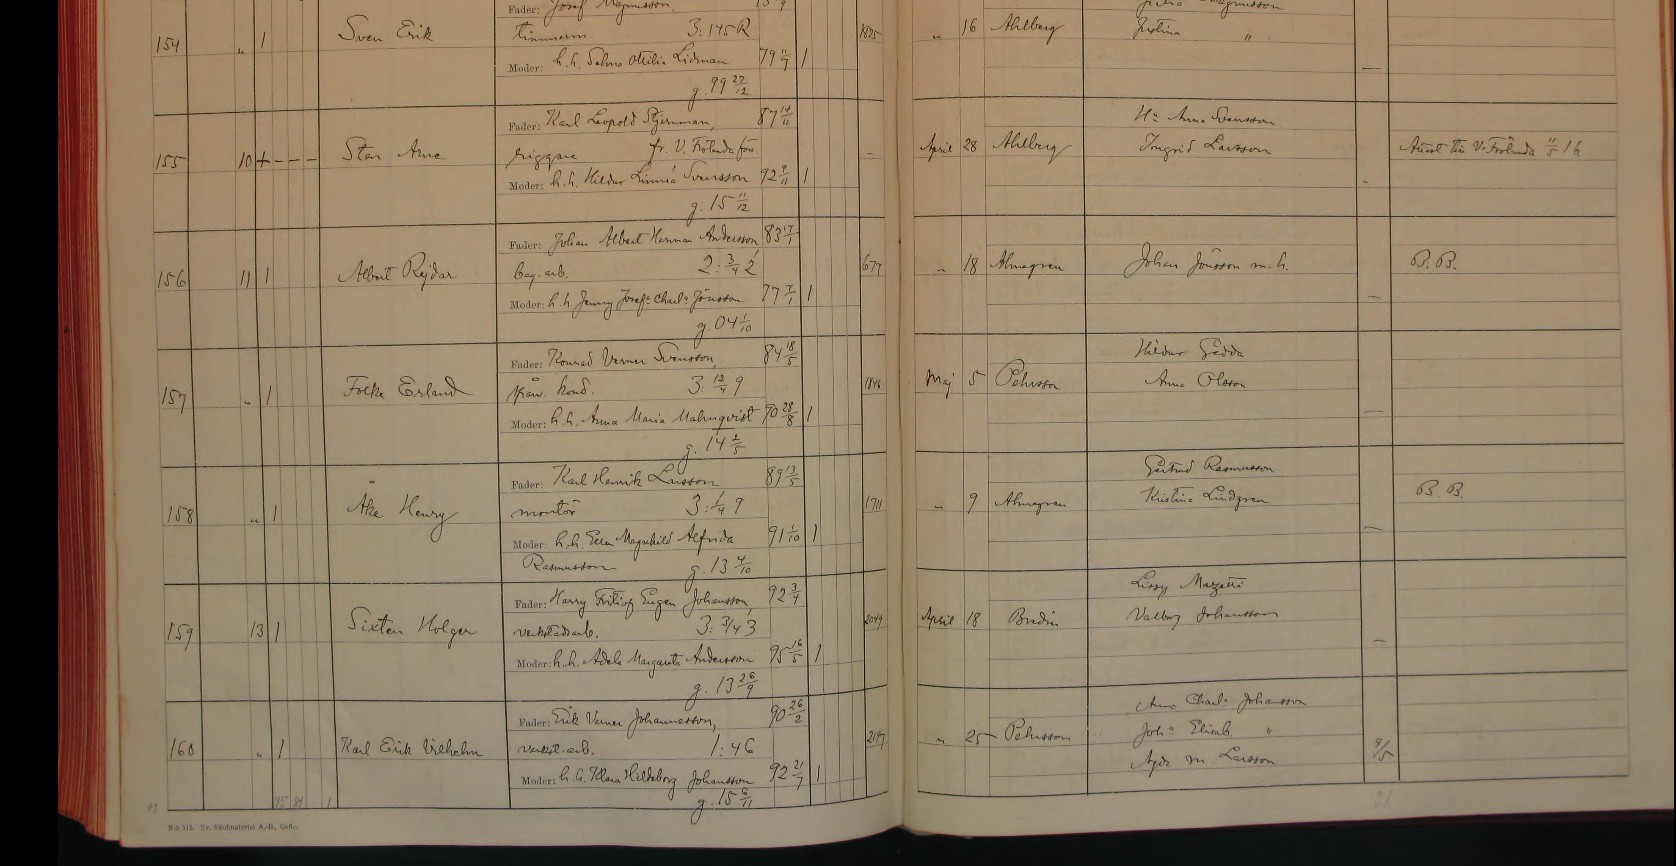 Fader: Josef Magnusson
154 „ 1 Sven Erik timmerm. 3:145 R 1825 „ 16 Ahlberg Justina „
Moder: h.h. Selma Otilia Lidman 79 11/7 1 —
g. 99 27/12
Fader: Karl Leopold Stjernman, 87 14/11 Hu Anna Svensson
155 10 + - - - Sten Arne riggare fr. V. Frölunda förs. — April 28 Ahlberg Ingrid Larsson Attest till V. Frölunda 11/5 16
Moder: h.h. Hildur Linnéa Svensson 92 9/11 1 -
g. 15 11/12
Fader: Johan Albert Herman Andersson 83 17/1
156 11 1 Albert Rejdar bag. arb. 2: 3/4 2 677 „ 18 Almegren Johan Jönsson m. h. B. B.
Moder: h.h. Jenny Josefa Charla Jönsson 77 7/1 1 —
g. 04 1/10
Fader: Konrad Verner Svensson, 84 18/5 Hildur Gedda
157 „ 1 Folke Erland spårv. kond. 3: 12/4 9 1846 Maj 5 Pehrsson Anna Olsson
Moder: h.h. Anna Maria Malmqvist 90 28/8 1 —
g. 14 2/5
Fader: Karl Henrik Larsson 89 13/5 Gertrud Rasmusson
158 „ 1 Åke Henry montör 3: 1/4 9 1711 „ 9 Almegren Kristina Lindgren B. B.
Moder: h.h. Ellen Magnhild Alfrida 91 1/10 1 —
Rasmusson g. 13 4/10
Fader: Harry Fritiof Eugen Johansson, 92 3/4 Lissy Mazetti
159 13 1 Sixten Holger verkstadsarb. 3: 3/4 3 2049 April 18 Bredin Valborg Johansson
Moder: h.h. Adele Margareta Andersson 95 16/5 1 —
g. 13 26/9
Fader: Erik Verner Johannesson, 90 26/2 Anna Charla Johansson
160 „ 1 Karl Erik Vilhelm verkst. arb. 1:46 2147 „ 25 Pehrsson Joha Elisab „
Moder: h.h. Klara Hildeborg Johansson 92 21/7 1 Agda M Larsson 9/5
g. 15 6/11
N:o 113. Sv. Skolmateriel A.-B., Gefle.